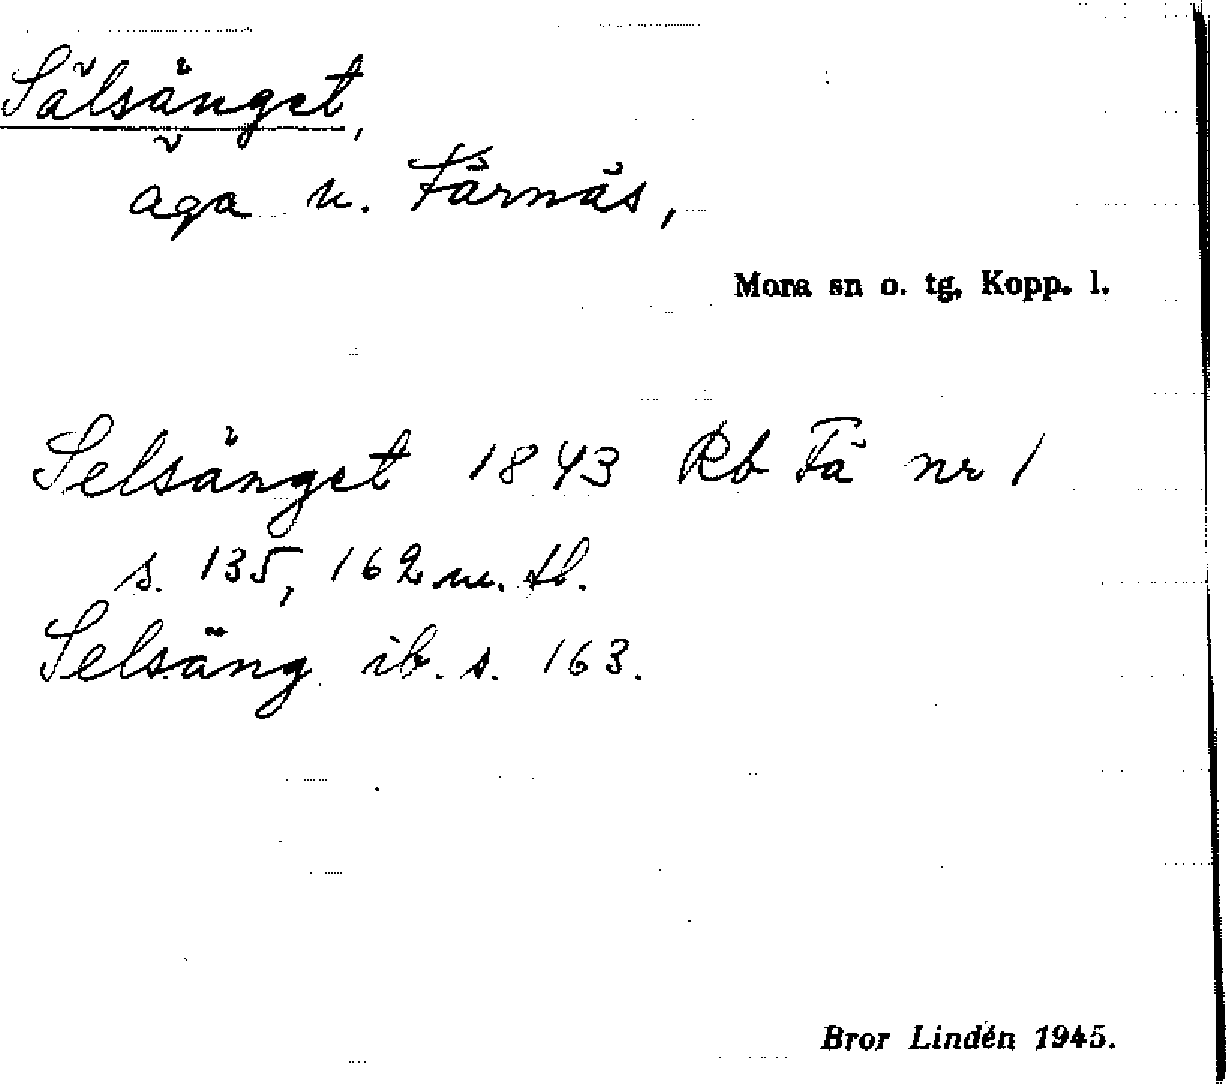 Sälsänget,
äga u. Färnäs,
Mora sn o. tg, Kopp. l.
Selsänget 1843 Rb Fä nr 1
s. 135, 162 m. fl.
Selsäng ib. s. 163.
Bror Lindén 1945.